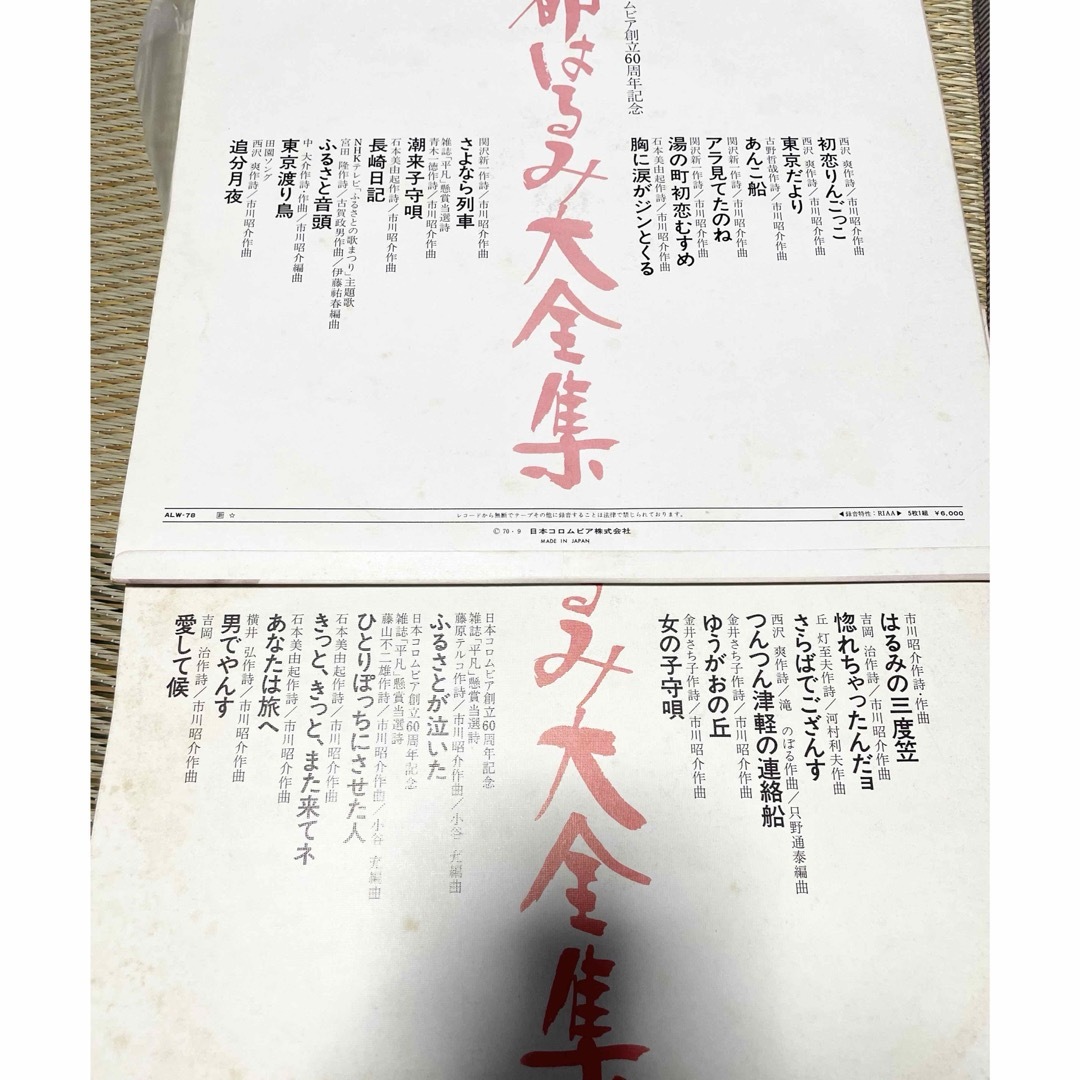 都はるみ大全集
ムビア創立60周年記念
西沢 爽作詩／市川昭介作曲
初恋りんごっこ
西沢 爽作詩／市川昭介作曲
東京だより
古野哲哉作詩／市川昭介作曲
あんこ船
関沢新一作詩／市川昭介作曲
アラ見てたのね
関沢新一作詩／市川昭介作曲
湯の町初恋むすめ
石本美由起作詩／市川昭介作曲
胸に涙がジンとくる
関沢新一作詩／市川昭介作曲
さよなら列車
雑誌「平凡」懸賞当選詩
青木一徳作詩／市川昭介作曲
潮来子守唄
石本美由起作詩／市川昭介作曲
長崎日記
NHKテレビ「ふるさとの歌まつり」主題歌
宮田 隆作詩／古賀政男作曲／伊藤祐春編曲
ふるさと音頭
中 大介作詩・作曲／市川昭介編曲
東京渡り鳥
田園ソング
西沢 爽作詩／市川昭介作曲
追分月夜
ALW-78
レコードから無断でテープその他に録音することは法律で禁じられております。
◀録音特性：RIAA▶ 5枚1組 ￥6,000
Ⓒ70・9 日本コロムビア株式会社
MADE IN JAPAN
るみ大全集
市川昭介作詩・作曲
はるみの三度笠
吉岡 治作詩／市川昭介作曲
惚れちゃったんだョ
丘 灯至夫作詩／河村利夫作曲
さらばでござんす
西沢 爽作詩／滝 のぼる作曲／只野通泰編曲
つんつん津軽の連絡船
金井さち子作詩／市川昭介作曲
ゆうがおの丘
金井さち子作詩／市川昭介作曲
女の子守唄
日本コロムビア創立60周年記念
雑誌「平凡」懸賞当選詩
藤原テルコ作詩／市川昭介作曲／小谷 充編曲
ふるさとが泣いた
日本コロムビア創立60周年記念
雑誌「平凡」懸賞当選詩
藤山不二雄作詩／市川昭介作曲／小谷 充編曲
ひとりぽっちにさせた人
石本美由起作詩／市川昭介作曲
きっと、きっと、また来てネ
石本美由起作詩／市川昭介作曲
あなたは旅へ
横井 弘作詩／市川昭介作曲
男でやんす
吉岡 治作詩／市川昭介作曲
愛して候